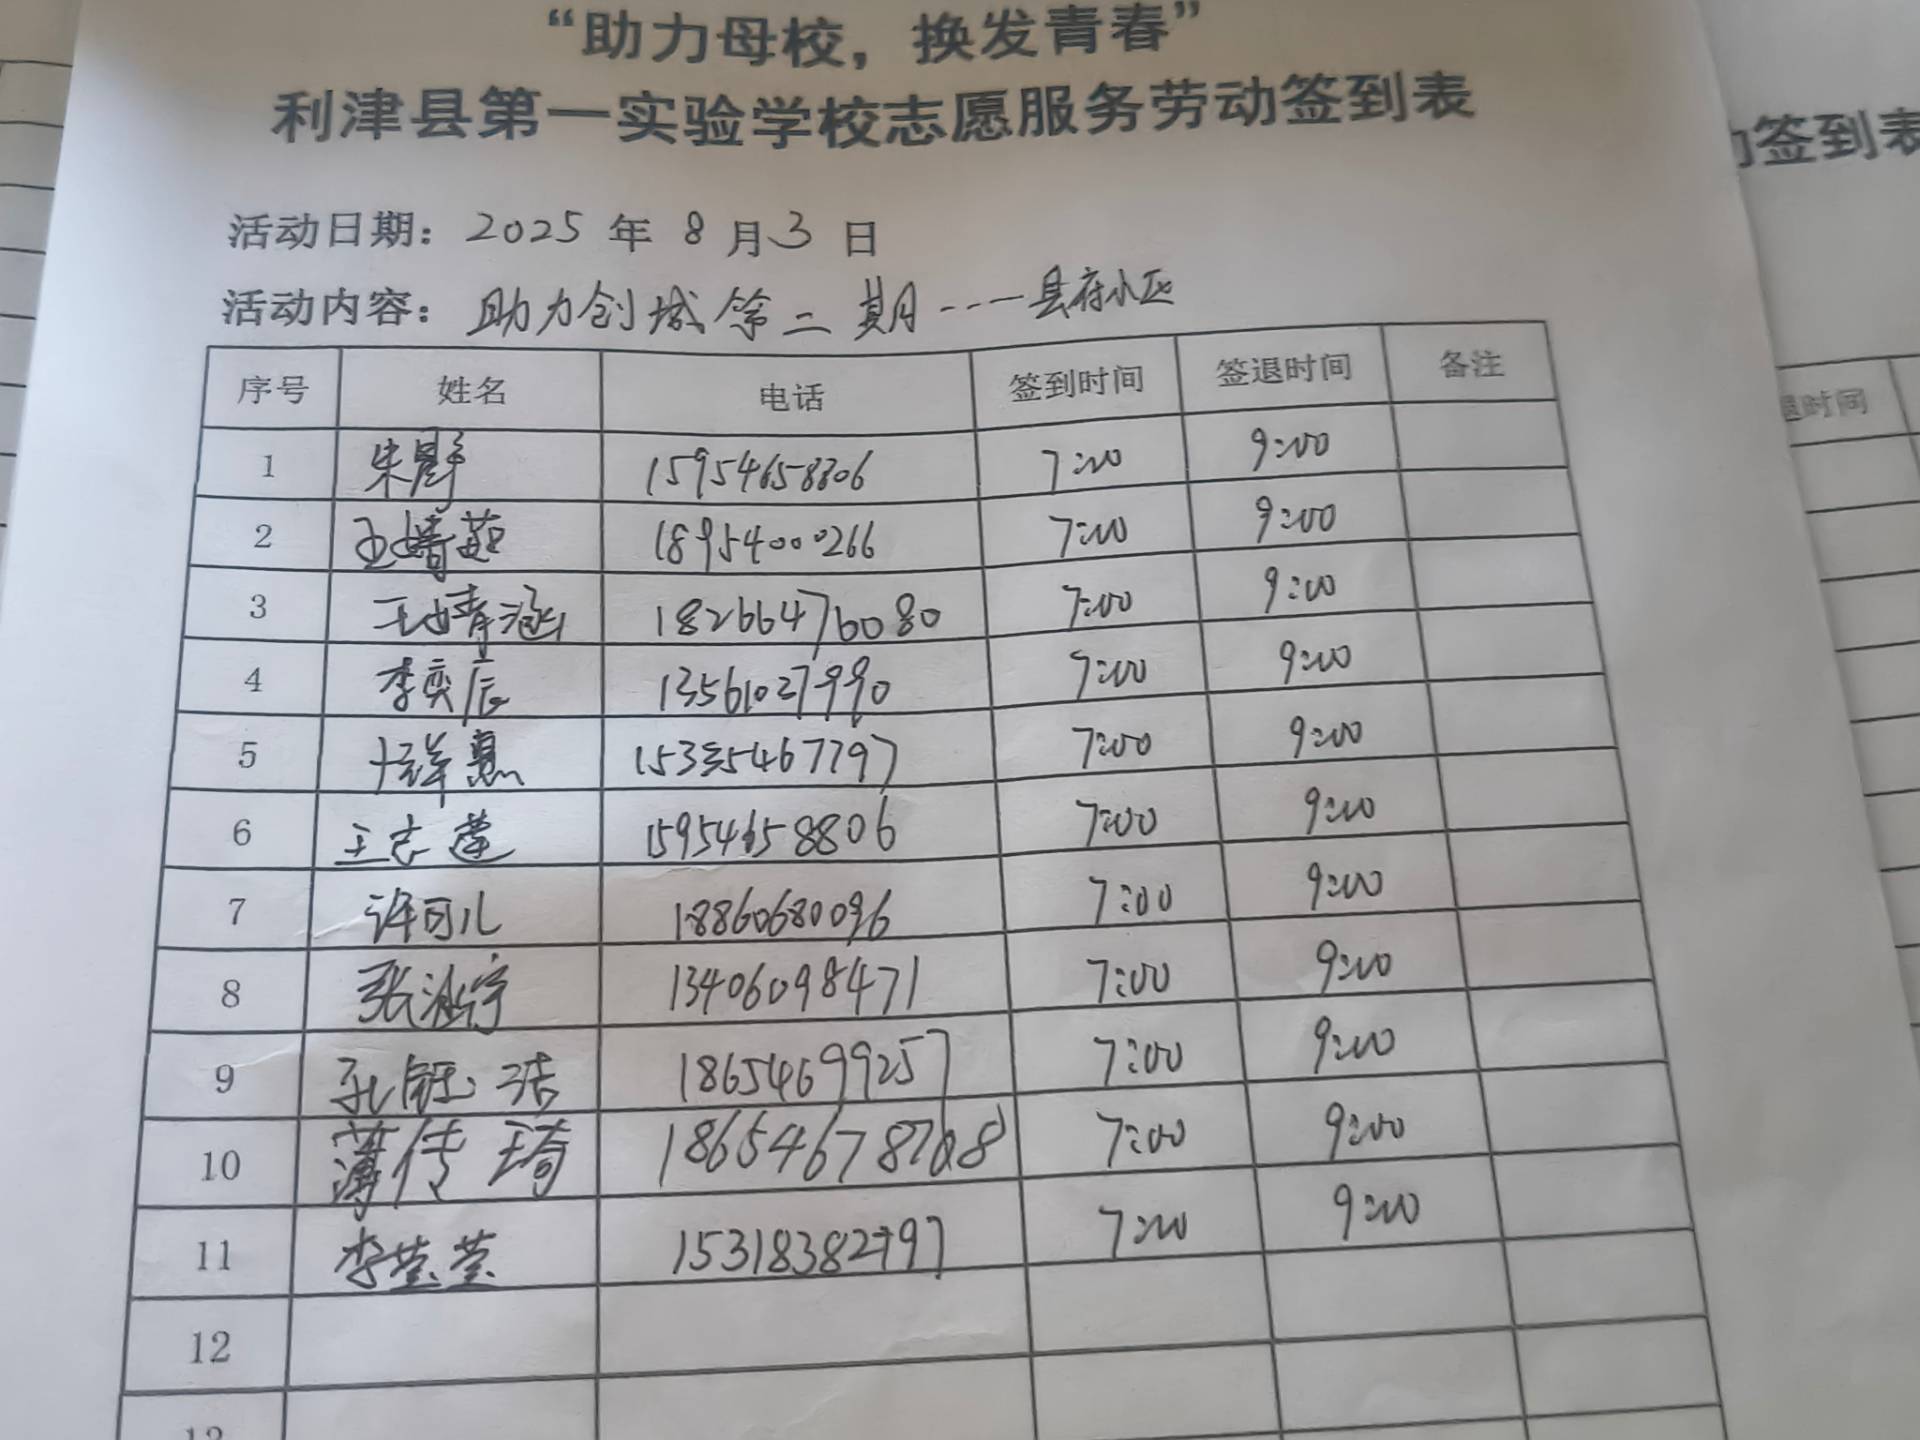 “助力母校，换发青春”
利津县第一实验学校志愿服务劳动签到表
动签到表
活动日期：2025 年 8 月 3 日
活动内容：助力创城第二期----县府小区
序号 姓名 电话 签到时间 签退时间 备注
退时间
1 朱 15954658806 7:00 9:00
2 王婧茹 18954000266 7:00 9:00
3 王婧涵 18266476080 7:00 9:00
4 李奕辰 13561027990 7:00 9:00
5 15335467797 7:00 9:00
6 王志莲 15954658806 7:00 9:00
7 许可儿 18860680096 7:00 9:00
8 张 13406098471 7:00 9:00
9 孔钰洁 18654699257 7:00 9:00
10 薄传琦 18654678768 7:00 9:00
11 李莹莹 15318382797 7:00 9:00
12